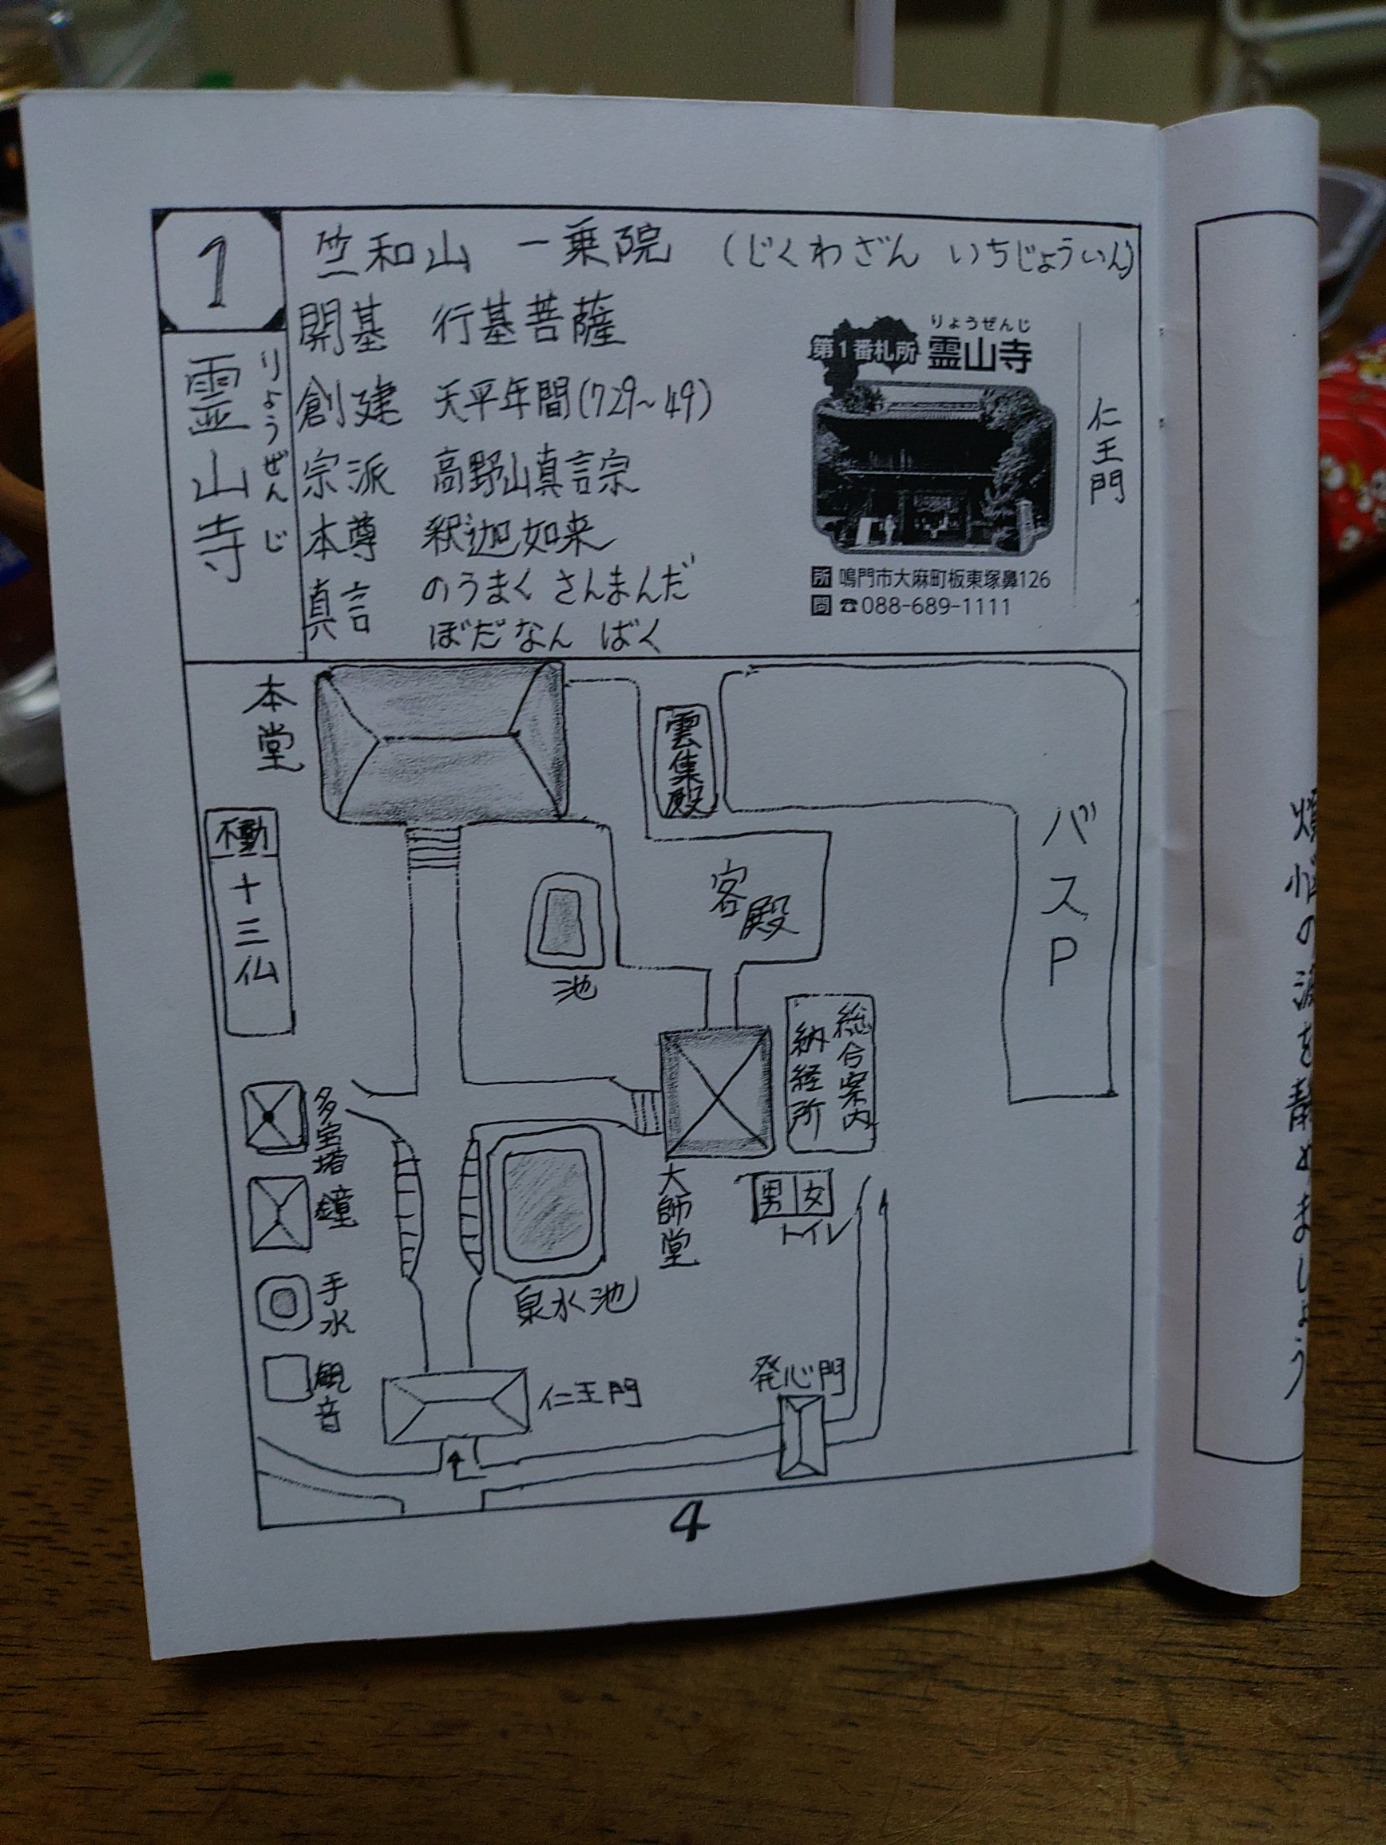 1
霊山寺
りょうぜんじ
竺和山 一乗院 (じくわざん いちじょういん)
開基 行基菩薩
創建 天平年間(729~49)
宗派 高野山真言宗
本尊 釈迦如来
真言 のうまく さんまんだ
ぼだなん ばく
りょうぜんじ
第1番札所 霊山寺
所 鳴門市大麻町板東塚鼻126
問 ☎088-689-1111
仁王門
本堂
雲集殿
バスP
不動
十三仏
客殿
池
総合案内
納経所
多宝塔
大師堂
男 女
トイレ
鐘
手水
泉水池
観音
仁王門
発心門
4
煩悩の源を静めましょう